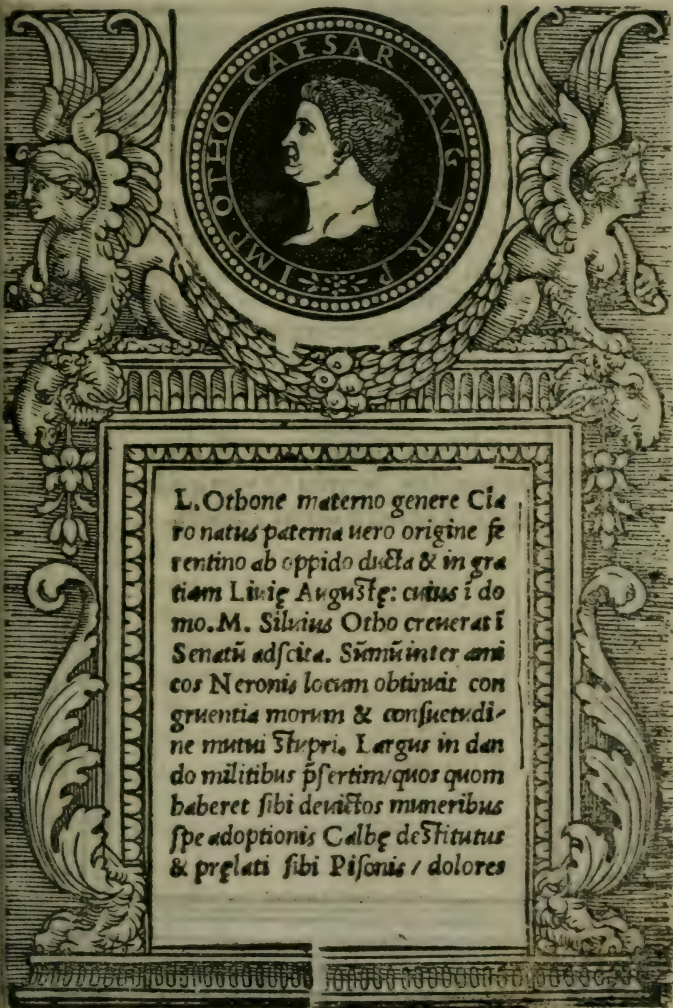 IMP OTHO CAESAR AVG T R P
L. Othone materno genere Cla
ro natus paterna uero origine fe
rentino ab oppido ducta & in gra
tiam Liuię Augustę: cuius ī do
mo. M. Siluius Otho creuerat ī
Senatū adscita. Sūmū inter ami
cos Neronis locum obtinuit con
gruentia morum & consuetudi-
ne mutui stupri. Largus in dan
do militibus p̄sertim/quos quom
haberet sibi deuictos muneribus
spe adoptionis Calbę destitutus
& pręlati sibi Pisonis / dolores